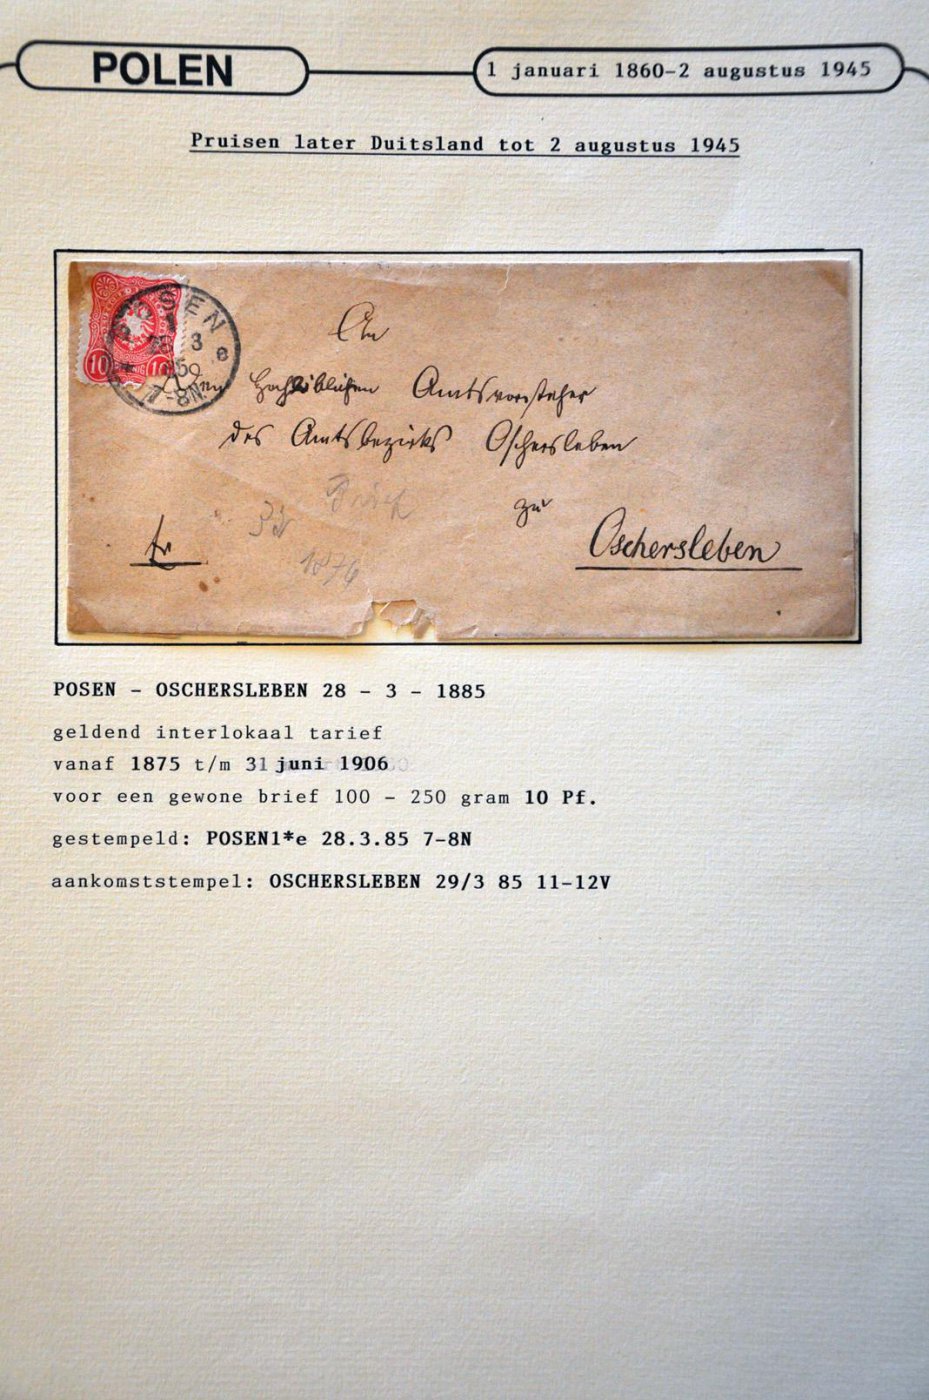 POLEN
1 januari 1860-2 augustus 1945
Pruisen later Duitsland tot 2 augustus 1945
POSEN
3
e
7-8N
10 PFENNIG 10
An
den Hochlöblichen Amtsvorsteher
des Amtsbezirks Oschersleben
zu
Oschersleben
1876
POSEN - OSCHERSLEBEN 28 - 3 - 1885
geldend interlokaal tarief
vanaf 1875 t/m 31 juni 1906
voor een gewone brief 100 - 250 gram 10 Pf.
gestempeld: POSEN1*e 28.3.85 7-8N
aankomststempel: OSCHERSLEBEN 29/3 85 11-12V